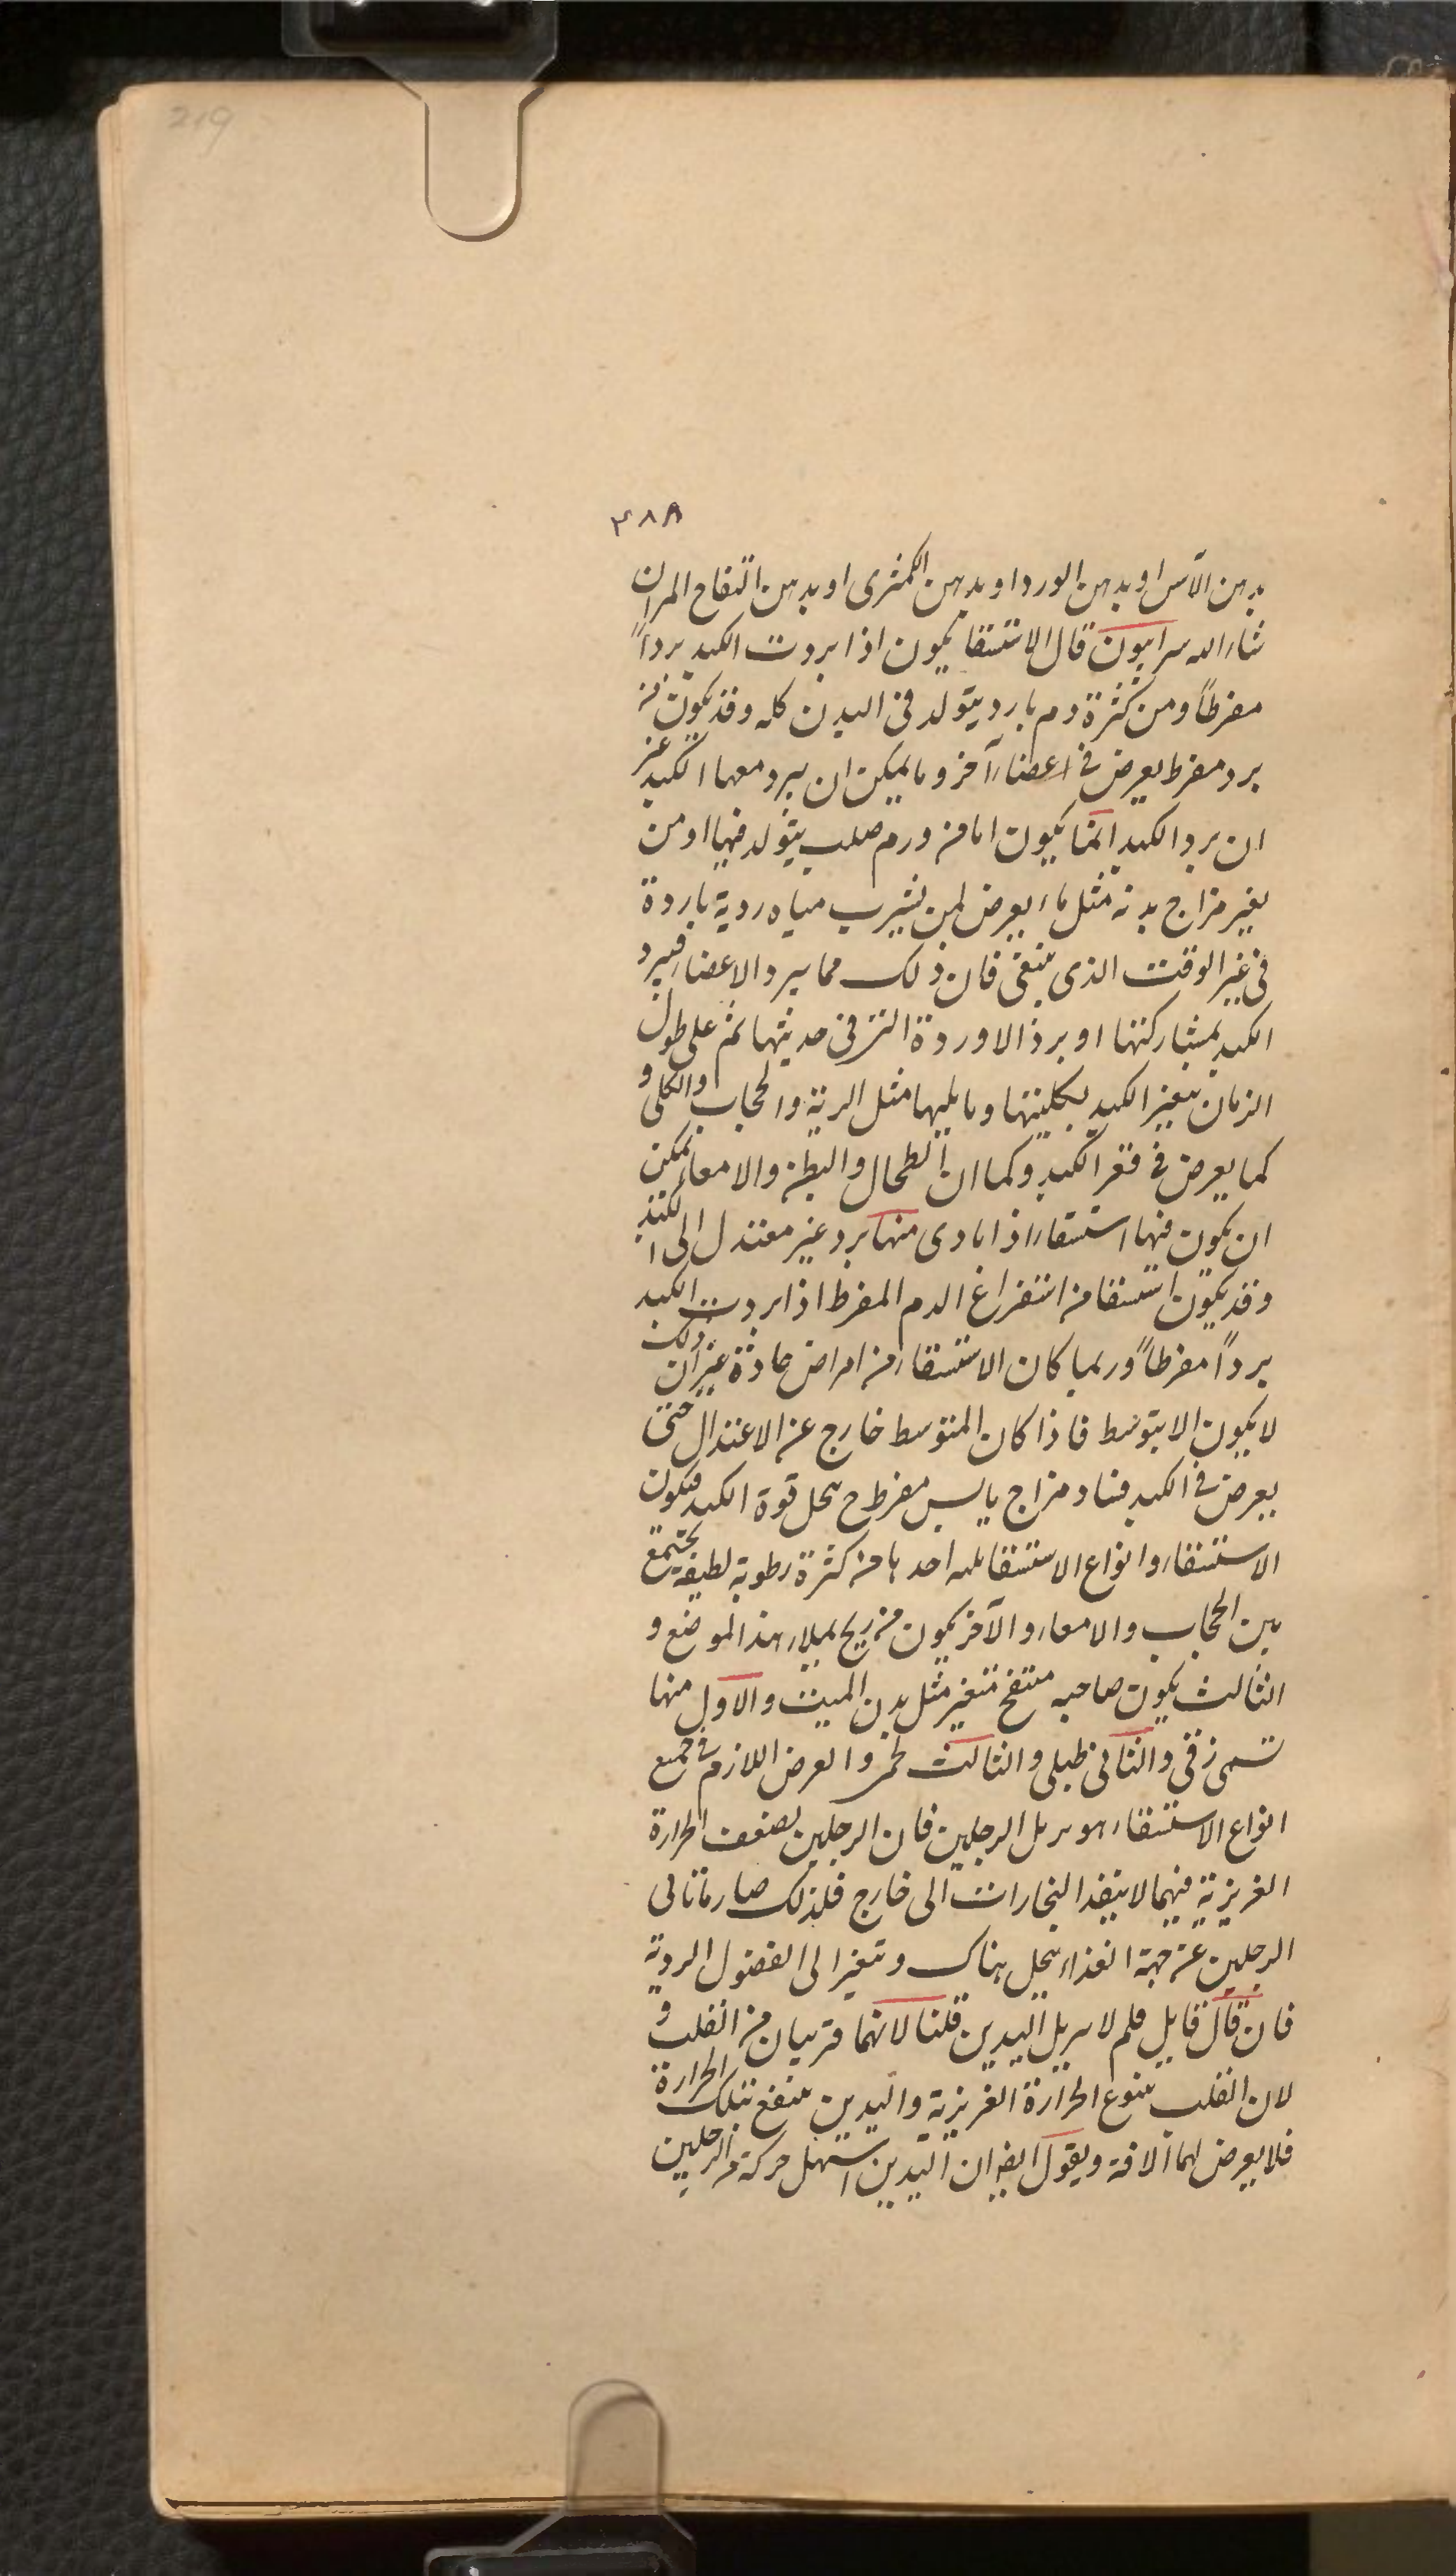 219
۳۸۸
بدهن الآس او بدهن الورد او بدهن الكمثرى او بدهن التفاح المر ان
شاء الله سرابيون قال الاستسقا يكون اذا بردت الكبد برداً
مفرطاً ومن كثرة دم بارد يتولد فى البدن كله وقد يكون من
برد مفرط يعرض فى اعضاء آخر وما يمكن ان يبرد معها الكبد غير
ان برد الكبد انما يكون اما من ورم صلب يتولد فيها او من
تغير مزاج بدنه مثل ماء يعرض لمن يشرب مياه ردية باردة
فى غير الوقت الذى ينبغى فان ذلك مما يبرد الاعضاء فيبرد
الكبد بمشاركتها او برد الاوردة التى فى حدبتها ثم على طول
الزمان يتغير الكبد بكليتها وما يليها مثل الرية والحجاب والكلى و
كما يعرض فى قعر الكبد وكما ان الطحال والبطن والامعاء يمكن
ان يكون فيها استسقاء اذا بادى منها برد غير معتدل الى الكبد
وقد يكون استسقا من استفراغ الدم المفرط اذا بردت الكبد
برداً مفرطاً وربما كان الاستسقاء من امراض حادثة غير ان ذلك
لا يكون الا بتوسط فاذا كان المتوسط خارج عن الاعتدال حتى
يعرض فى الكبد فساد مزاج يابس مفرط ح يحل قوة الكبد فيكون
الاستسقاء وانواع الاستسقا ثلثه احدها من كثرة رطوبة لطيفة يجتمع
بين الحجاب والامعاء والآخر يكون من ريح يملاء هذا الموضع و
الثالث يكون صاحبه منتفخ متغير مثل بدن الميت والاول منها
تسمى زقى والثانى طبلى والثالث لحمى والعرض اللازم فى جميع
انواع الاستسقاء هو تربل الرجلين فان الرجلين لضعف الحرارة
الغريزية فيهما لا ينفذ البخارات الى خارج فلذلك صار ما تاتى
الرجلين من جهة الغذاء ينحل هناك وتتغير الى الفضول الردية
فان قال قايل فلم لا تتربل اليدين قلنا لانهما قريبان من القلب و
لان القلب ينبوع الحرارة الغريزية واليدين ينتفع بتلك الحرارة
فلا يعرض لهما الافة ويقول ايضا ان اليدين اسهل حركة من الرجلين